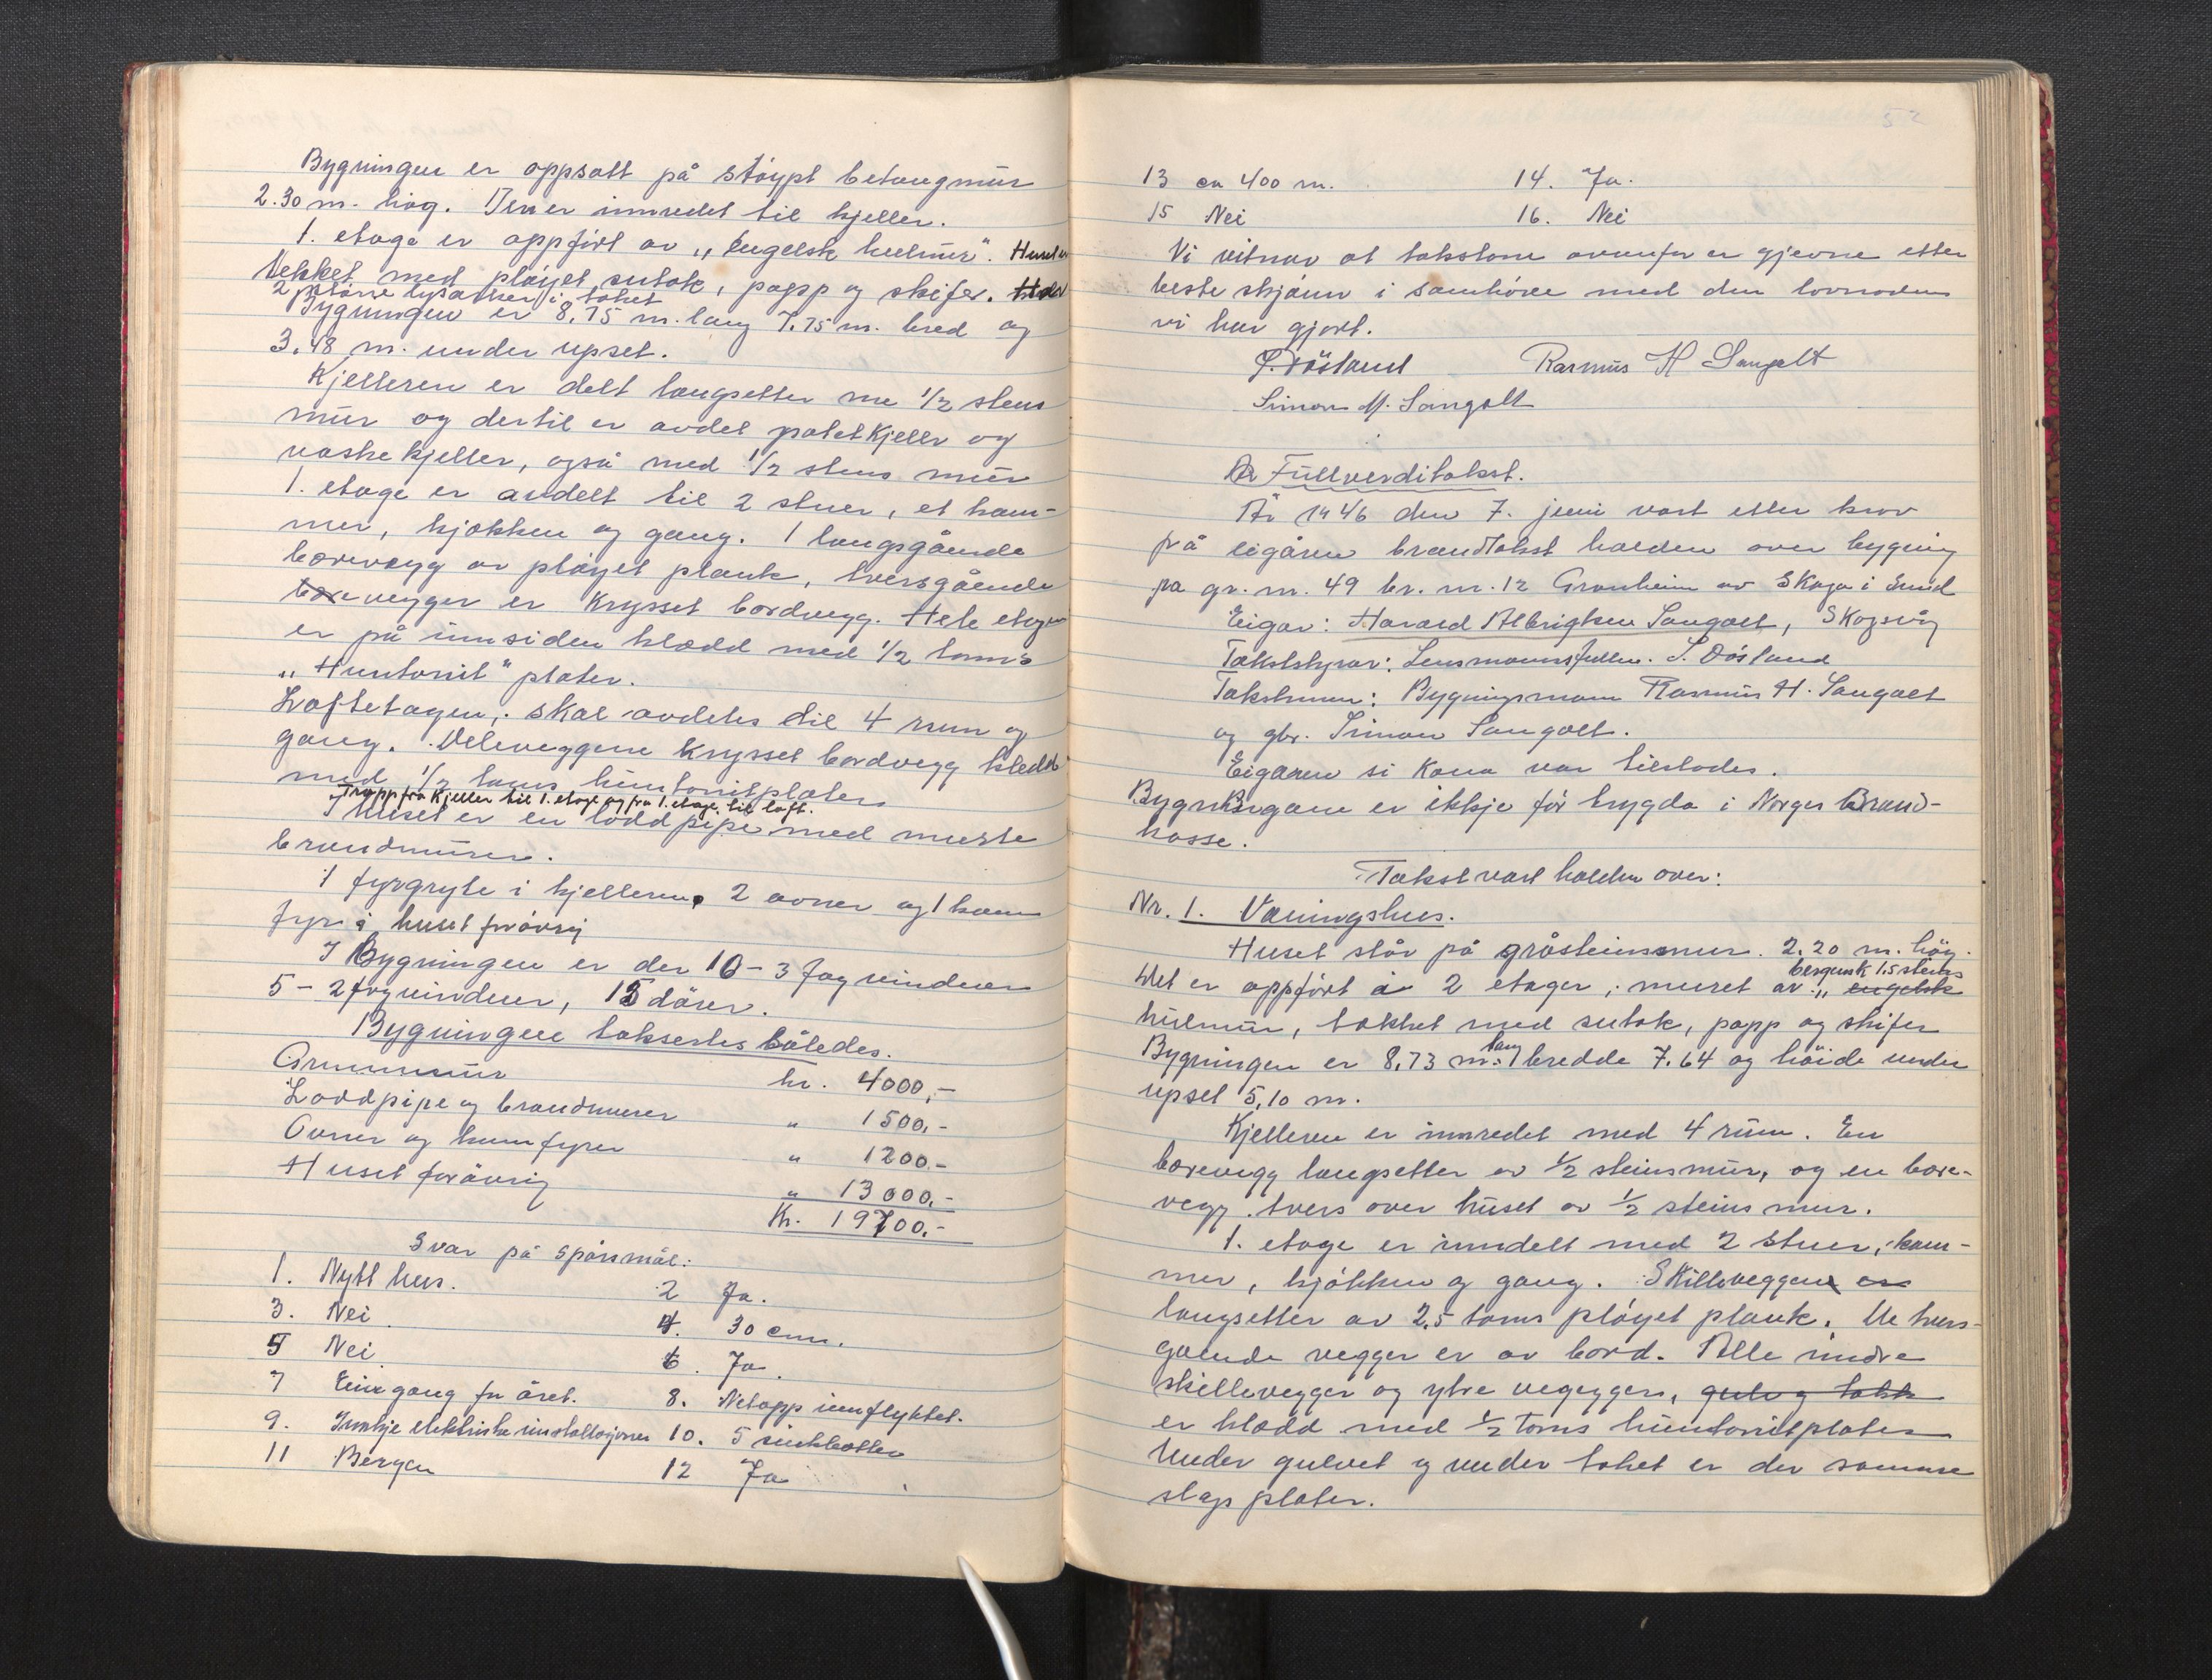 Bygningen er oppsatt på støypt betongmur
2.30 m. høg. Den er innredet til kjeller.
1. etage er oppført av „Engelsk hulmur". Huset er
tekket med pløyet sutak, papp og skifer.
2 større lysarker i taket
Bygningen er 8.75 m. lang 7.75 m. bred og
3.48 m. under upset.
Kjelleren er delt langsetter me 1/2 stens
mur og dertil er avdel potetkjeller og
vaskekjeller, også med 1/2 stens mur
1. etage er avdelt til 2 stuer, et kam-
mer, kjøkken og gang. 1 langsgående
berevegg av pløyet plank, tversgående
berevegger er krysset bordvegg. Hele etagen
er på innsiden kledd med 1/2 toms
„Huntonit" plater.
Loftetagen, skal avdeles til 4 rum og
gang. Deleveggene krysset bordvegg kledd
med 1/2 toms huntonitplater
Trapp fra kjeller til 1. etage og fra 1. etage til loft.
I huset er en loddpipe med murte
brandmurer.
1 fyrgryte i kjelleren, 2 ovner og 1 kom
fyr i huset forøvrig
I Bygningen er der 10 - 3 fag vinduer
5 - 2 fag vinduer, 15 dører.
Bygningen takseres således.
Grunnmur kr. 4000,-
Loddpipe og brandmurer " 1500.-
Ovner og komfyrer " 1200.-
Huset forøvrig " 13000.-
Kr. 19700.-
Svar på spørsmål:
1. Nytt hus. 2 Ja.
3. Nei. 4. 30 cm.
5 Nei. 6. Ja.
7 Ein gang for året. 8. Netopp innflyttet.
9. Innkje elektriske installasjoner 10. 5 sinkbøtter
11 Bergen 12 Ja
52
13 ca 400 m. 14. Ja.
15 Nei 16. Nei
Vi vitnar at takstane ovanfor er gjevne etter
beste skjønn i samhøve med den lovnaden
vi har gjort.
S. Døsland Rasmus H Sangolt
Simon M. Sangolt
Fullverditakst.
År 1946 den 7. juni vart etter krav
frå eigaren brandtakst halden over bygning
på gr. nr. 49 br. nr. 12 Granheim av Skoga i Sund
Eigar: Harald Albrigtsen Sangolt, Skogsvåg
Takststyrar: Lensmannsfullm. S. Døsland
Takstmenn: Bygningsmann Rasmus H. Sangolt
og gbr. Simon Sangolt.
Eigaren si kona var tilstades.
Bygningane er ikkje før trygda i Norges Brand-
kasse.
Takst vart halden over:
Nr. 1. Våningshus.
Huset står på gråsteinsmur. 2.20 m. høg.
bergensk 1,5 steins
Det er oppført i 2 etager, muret av „engelsk
hulmur, tekket med sutak, papp og skifer
Bygningen er 8.73 m. lang bredde 7.64 og høide under
upset 5,10 m.
Kjelleren er innredet med 4 rum. En
berevegg langsetter av 1/2 steinsmur, og en bere-
vegg tvers over huset av 1/2 steins mur.
1. etage er inndelt med 2 stuer, kam-
mer, kjøkken og gang. Skilleveggene er
langsetter av 2,5 toms pløyet plank. De tvers-
gående vegger er av bord. Alle indre
skillevegger og ytre vegger, gulv og takk
er kledd med 1/2 toms huntonitplater
Under gulvet og under taket er der samme
slags plater.